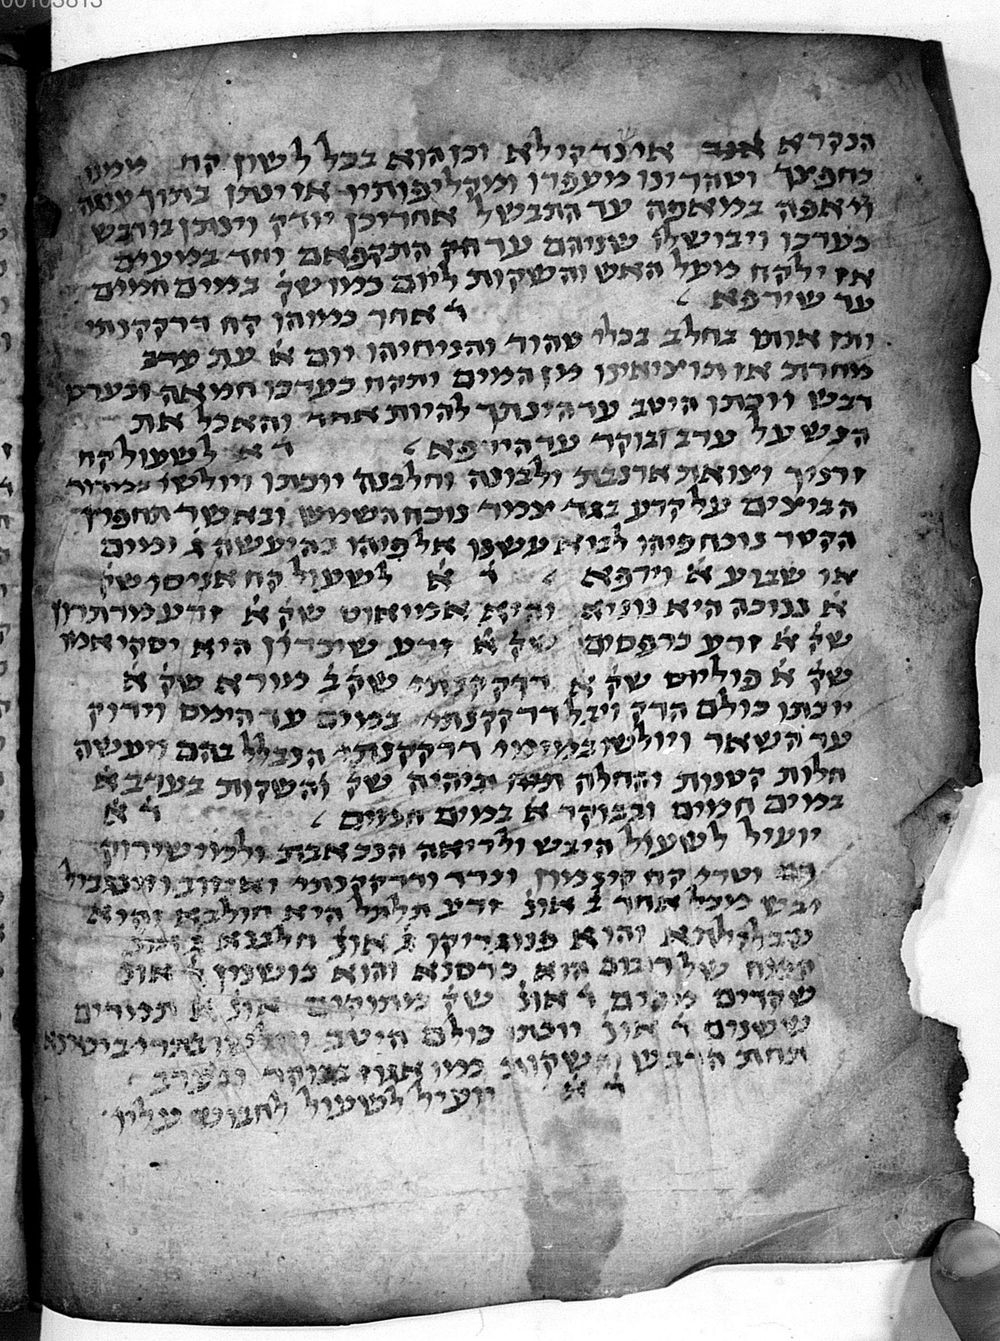 הנקרא אנב או נרקילא וכן הוא בכל לשון קח ממנו
כחפצך וטהרינו מעפרו ומקליפותיו או ינתן בתוך עוגה
ויאפה במאפה עד התבשל אחריכן יודק וינתן בו דבש
כערכו ויבושלו שניהם עד התקפאם וחד במעים
אז ילקח מעל האש והשקות ליום כמו שק במים חמים
עד שירפא
ר אחר כמוהו קח דרקקנתי
ותן אותו בחלב בכלי טהור והניחיהו יום א עת ערב
מחרת אז תוציאינו מן המים ותקח כערכו חמאה וכערכו
דבש ויוכתו היטב עד הינתך להיות אחד והאכל את
האיש על ערב ובוקר עד הירפא
ר א לשעול קח
זרניך וצואת ארנבת ולבונה וחלבנה יוכתו ויולשו
הביצים על קרע בגד צמר נוכח השמש ובאשר תחפוץ
הקטר נוכח פיהו לבוא עשנו אל פיהו כה יעשה ג ימים
או שבוע א וירפא ר א לשעול קח אניסון שק
א ננוכה היא נוניא והיא אמיאוס שק א זרע
שק א זרע כרפסים שק א זרע שיכרון היא יסקיאמו
שק א פוליום שק א דרקקנתי שק ב מורא שק א
יוכתו כולם הדק ויבל דרקקנתי במים עד הימס וידוק
עד השאר ויולשו במימי דרקקנתי הנבלל בהם ויעשה
חלות קטנות והחלה תהיה שק והשקות בערב א
במים חמים ובבוקר א במים חמים
ר א
יועיל לשעול היבש ולריאה הנכאבת ולמי שירוק
דם וטרי קח קינמון ונרד ודרקקנתי
יבש מכל אחד ב אונ זרע תלתל היא חולבא והיא
שבלילתא והוא פנוגריקו ג אונ חלבנא
קמח של היא כרסנא והוא כושנין ר אונ
שקדים מרים ר אונ שק מתוקים אונ א תמרים
ר אונ יוכתו כולם היטב
תחת הדבש והשקות ממו אגוז בבוקר ובערב
ר א יועיל לשעול לחבוש עליו